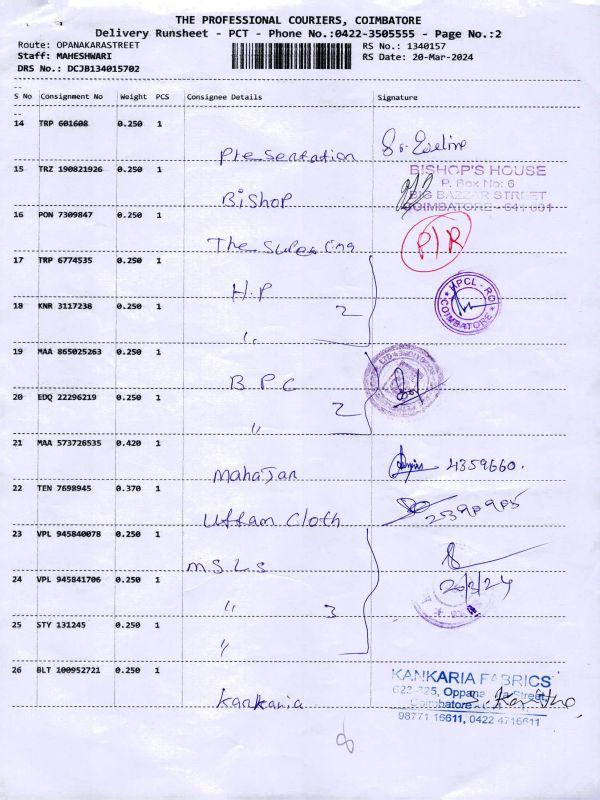 THE PROFESSIONAL COURIERS, COIMBATORE
Delivery Runsheet - PCT - Phone No.:0422-3505555 - Page No.:2
Route: OPANAKARASTREET
RS No.: 1340157
Staff: MAHESHWARI
RS Date: 20-Mar-2024
DRS No.: DCJB134015702
S No Consignment No Weight PCS Consignee Details Signature
14 TRP 601608 0.250 1
Presentation
15 TRZ 190821926 0.250 1
BISHOP'S HOUSE
P. Box No: 6
BIG BAZZAR STREET
COIMBATORE - 641 001
Bishop
16 PON 7309847 0.250 1
P/R
The
17 TRP 6774535 0.250 1
H.P
HPCL - RO
COIMBATORE
18 KNR 3117238 0.250 1
2
"
19 MAA 865025263 0.250 1
B P C
20 EDQ 22296219 0.250 1
2
"
21 MAA 573726535 0.420 1
Mahajan
4359660.
22 TEN 7698945 0.370 1
Uttam Cloth
23 VPL 945840078 0.250 1
M.S.L.S
20/3/24
24 VPL 945841706 0.250 1
" 3
25 STY 131245 0.250 1
"
26 BLT 100952721 0.250 1
KANKARIA FABRICS
Street,
Coimbatore
98771 16611, 0422 4716611
Kankaria
8